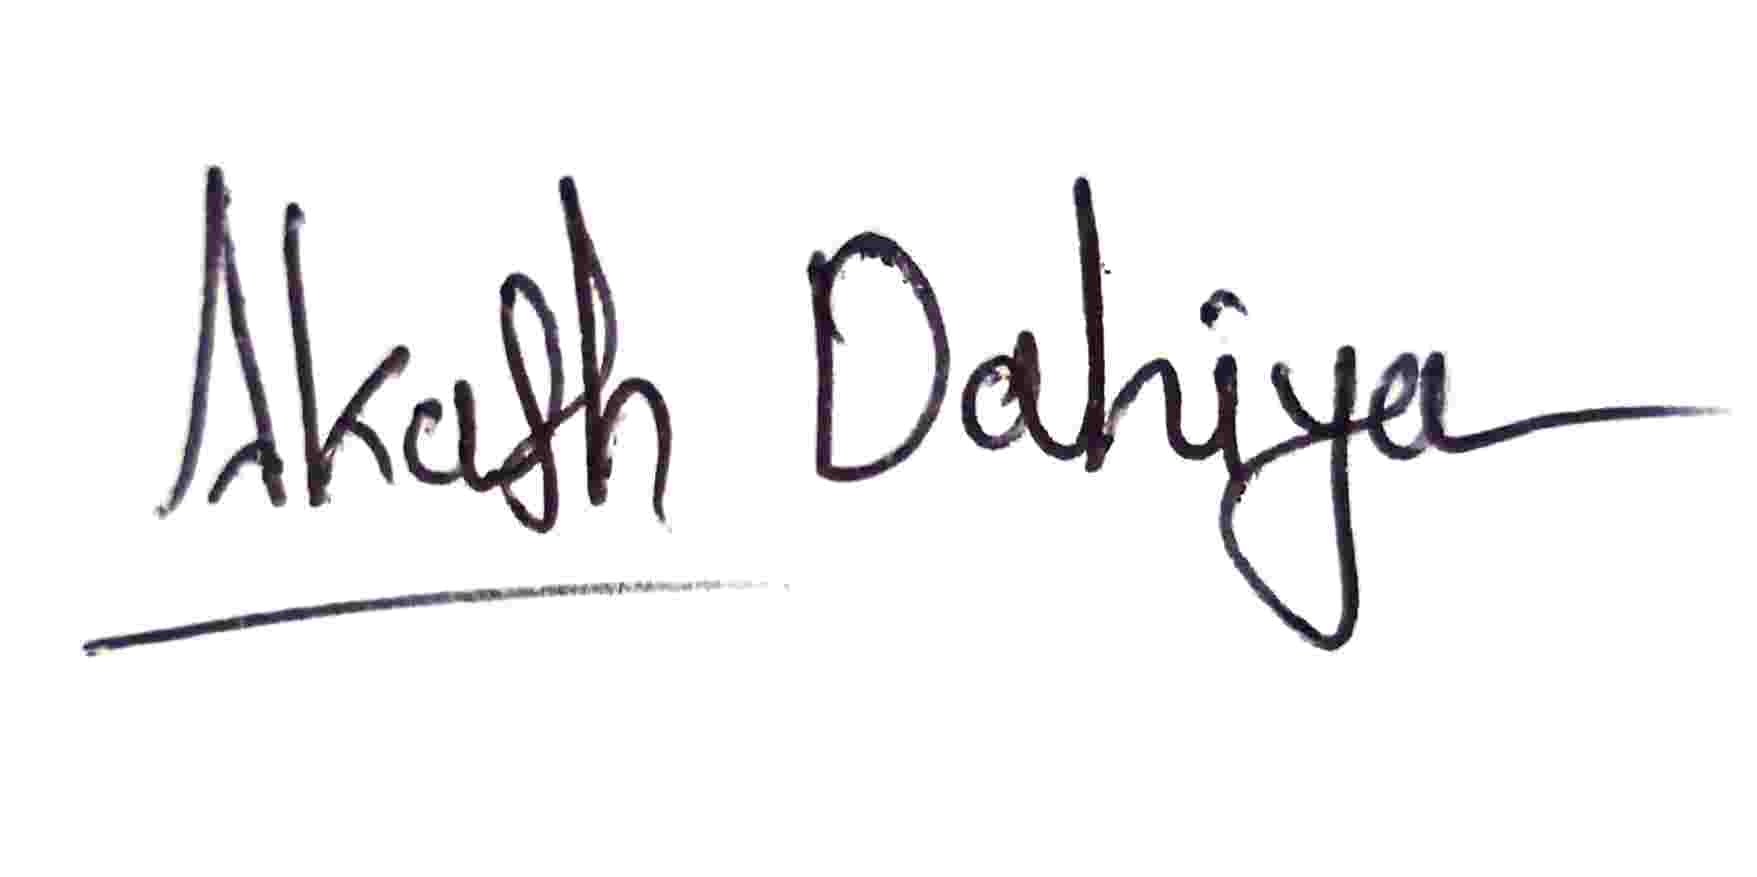 Akash Dahiya